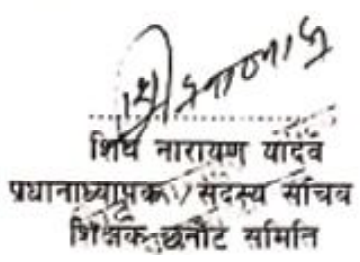 शिव नारायण यादव
प्रधानाध्यापक / सदस्य सचिव
शिक्षक छनौट समिति